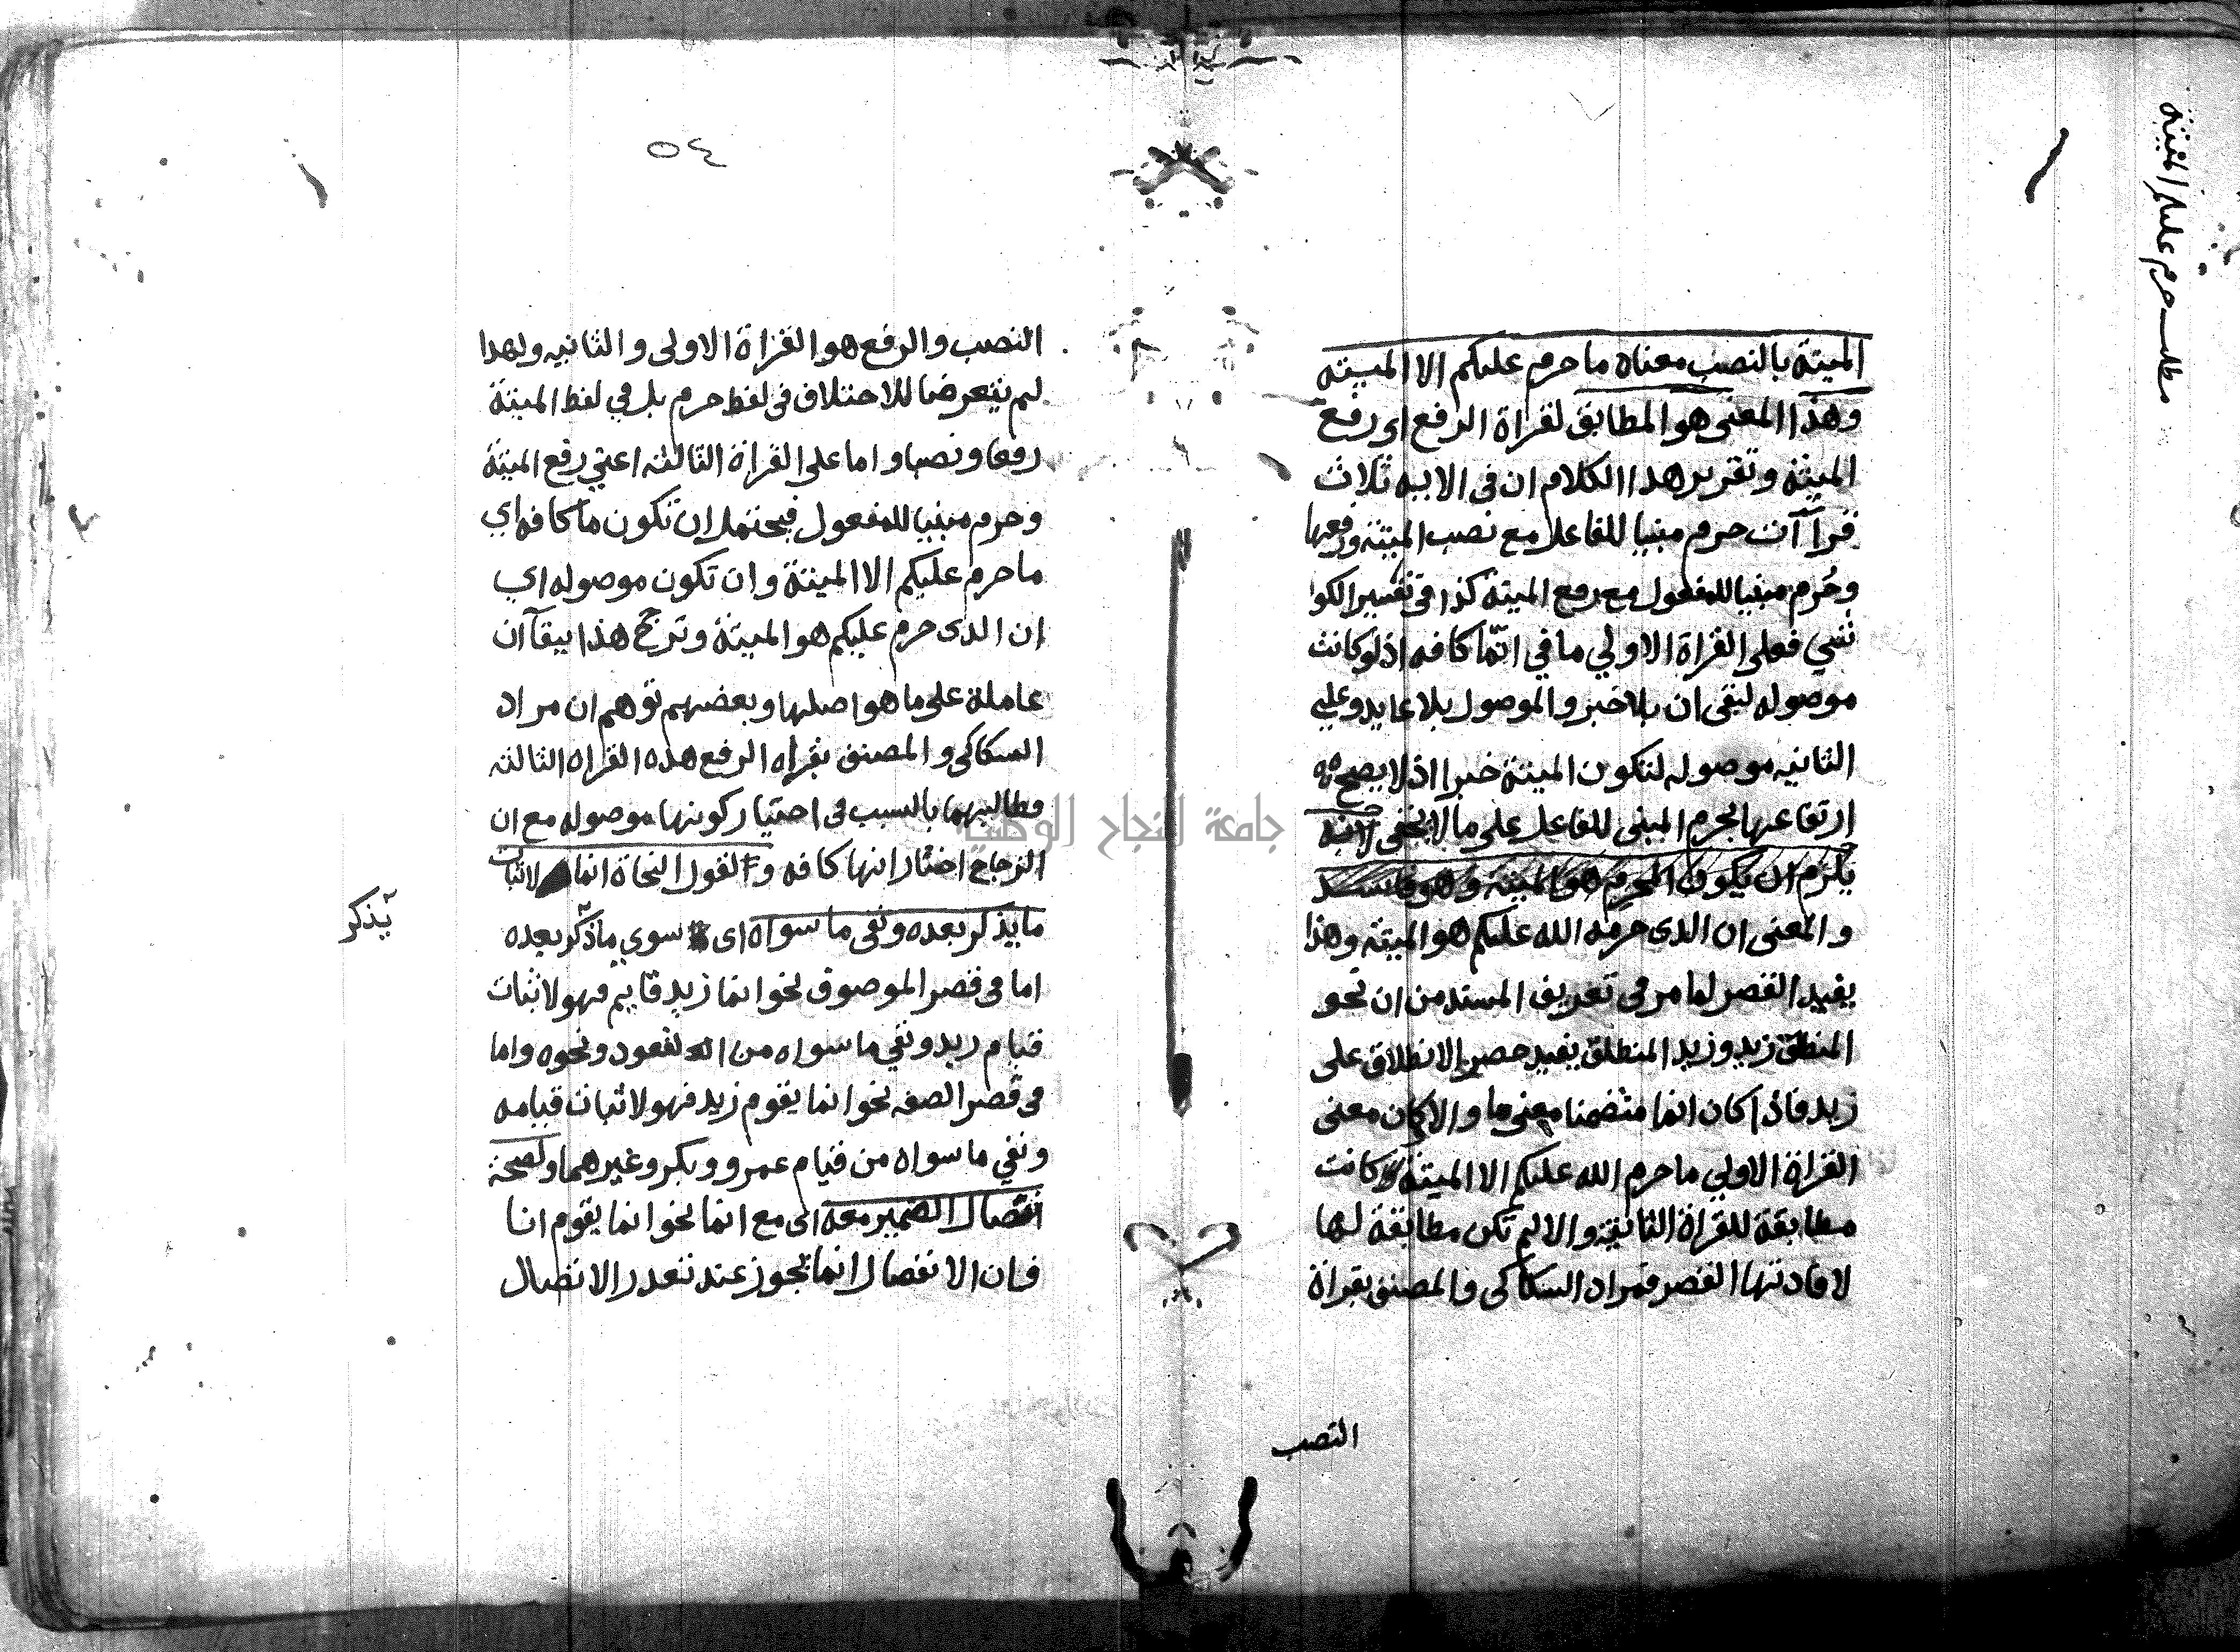 مطلب حرم عليكم الميتة
الميتة بالنصب معناه ما حرم عليكم الا الميته
وهذا المعنى هو المطابق لقراة الرفع اى رفع
الميتة وتقرير هدا الكلام ان فى الايه ثلاث
قرآآت حرم مبنيا للفاعل مع نصب الميتة ورفعها
وحُرم مبنيا للمفعول مع رفع الميتة كذا فى تفسير الكوا
شي فعلى القراة الاولي ما في انما كافه اذ لو كانت
موصوله لبقى ان بلا خبر والموصول بلا عايد وعلي
الثانيه موصوله لتكون الميتة خبرا اذ لا يصح
ارتفاعها بحرم المبنى للفاعل على ما لا يخفى لانه
يلزم ان يكون المحرم هو الميتة وهو فاسد
والمعنى ان الدى حرمه الله عليكم هو الميتة وهذا
يفيد القصر لما مر فى تعريف المسند من ان نحو
المنطلق زيد وزيد المنطلق يفيد حصر الانطلاق على
زيد فاذا كان انما متضمنا معنى ما والا كان معنى
القراة الاولي ما حرم الله عليكم الا الميتة كانت
مطابقة للقراة الثانية والا لم تكن مطابقة لها
لافادتها القصر فمراد السكاكى والمصنف بقراة
النصب
٥٤
النصب والرفع هو القراة الاولى والثانيه ولهدا
لم يتعرضا للاختلاف فى لفظ حرم بل في لفظ الميتة
رفعا ونصبا واما على القراة الثالثه اعني رفع الميتة
وحرم مبنيا للمفعول فيحتمل ان تكون ما كافه اي
ما حرم عليكم الا الميتة وان تكون موصوله اي
ان الدى حرم عليكم هو الميتة وترجح هذا ببقآ ان
عاملة على ما هو اصلها وبعضهم توهم ان مراد
السكاكى والمصنف بقراه الرفع هده القراه الثالثه
فطالبهما بالسبب فى اختيار كونها موصوله مع ان
الزجاج اختار انها كافه ولقول النحاة انما لاثبات
ما يذكر بعده ونفى ما سواه اى سوي ما ذكر بعده
يذكر
اما فى قصر الموصوف نحو انما زيد قايم فهو لاثبات
قيام زيد ونفي ما سواه من القعود ونحوه واما
فى قصر الصفه نحو انما يقوم زيد فهو لاثبات قيامه
ونفي ما سواه من قيام عمرو وبكر وغيرهما ولصحة
انفصال الضمير معه اى مع انما نحو انما يقوم انا
فان الانفصال انما يجوز عند تعدر الاتصال
جامعة النجاح الوطنية